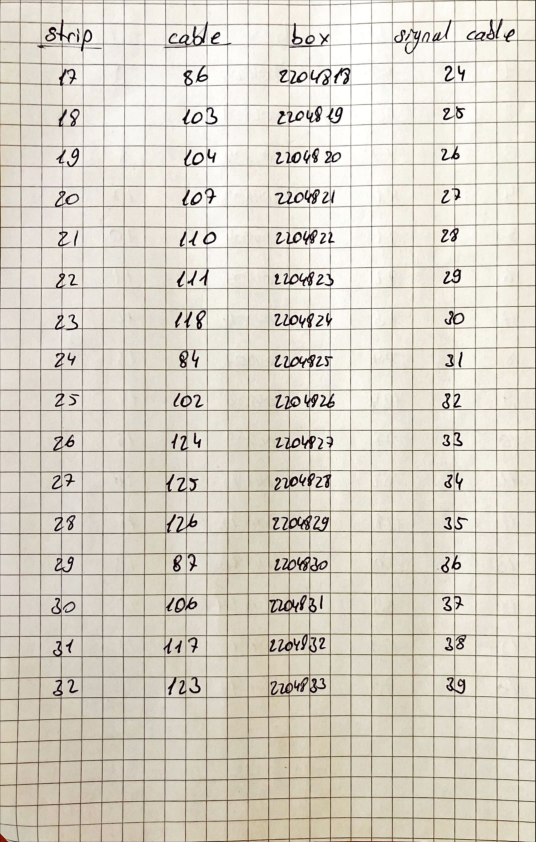 strip cable box signal cable
17 86 2204818 24
18 103 2204819 25
19 104 2204820 26
20 107 2204821 27
21 110 2204822 28
22 111 2204823 29
23 118 2204824 30
24 84 2204825 31
25 102 2204826 32
26 124 2204827 33
27 125 2204828 34
28 126 2204829 35
29 87 2204830 36
30 106 2204831 37
31 117 2204832 38
32 123 2204833 39